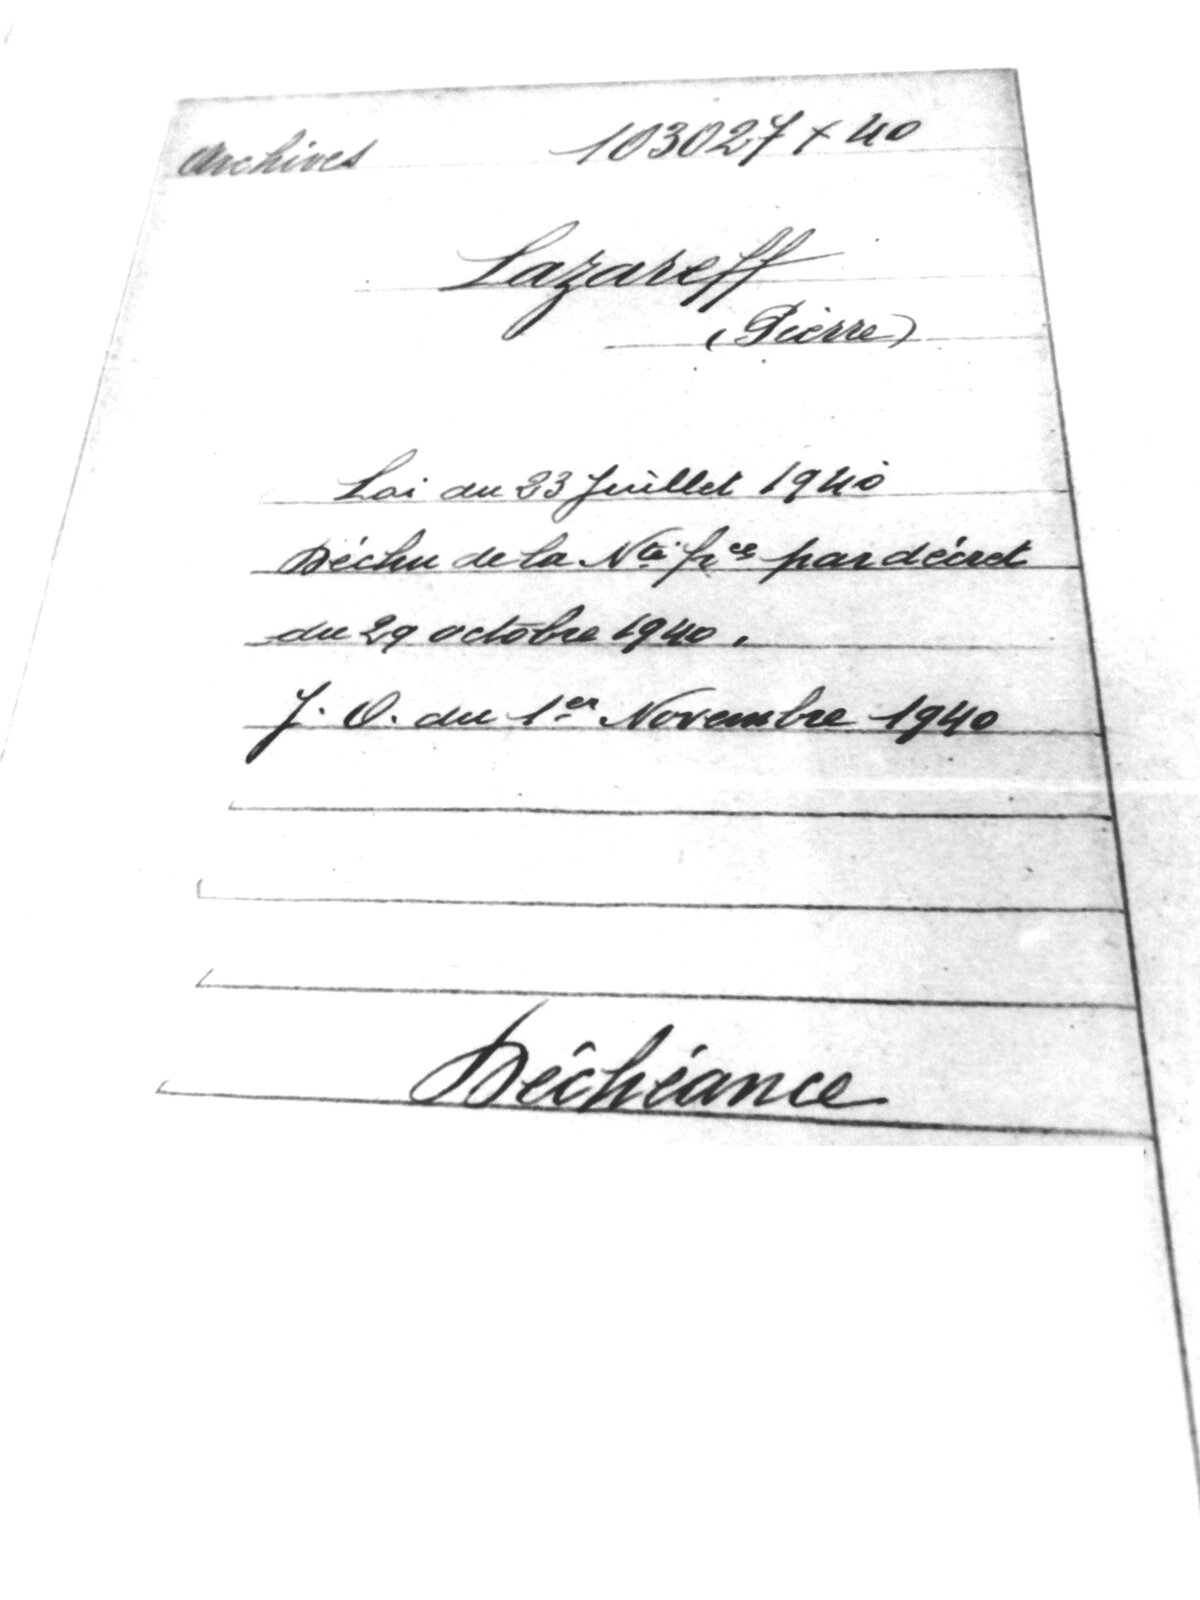 Archives 103027 x 40
Lazareff
(Pierre)
Loi du 23 Juillet 1940
Déchu de la Nté frse par décret
du 29 octobre 1940.
J. O. du 1er Novembre 1940
Déchéance